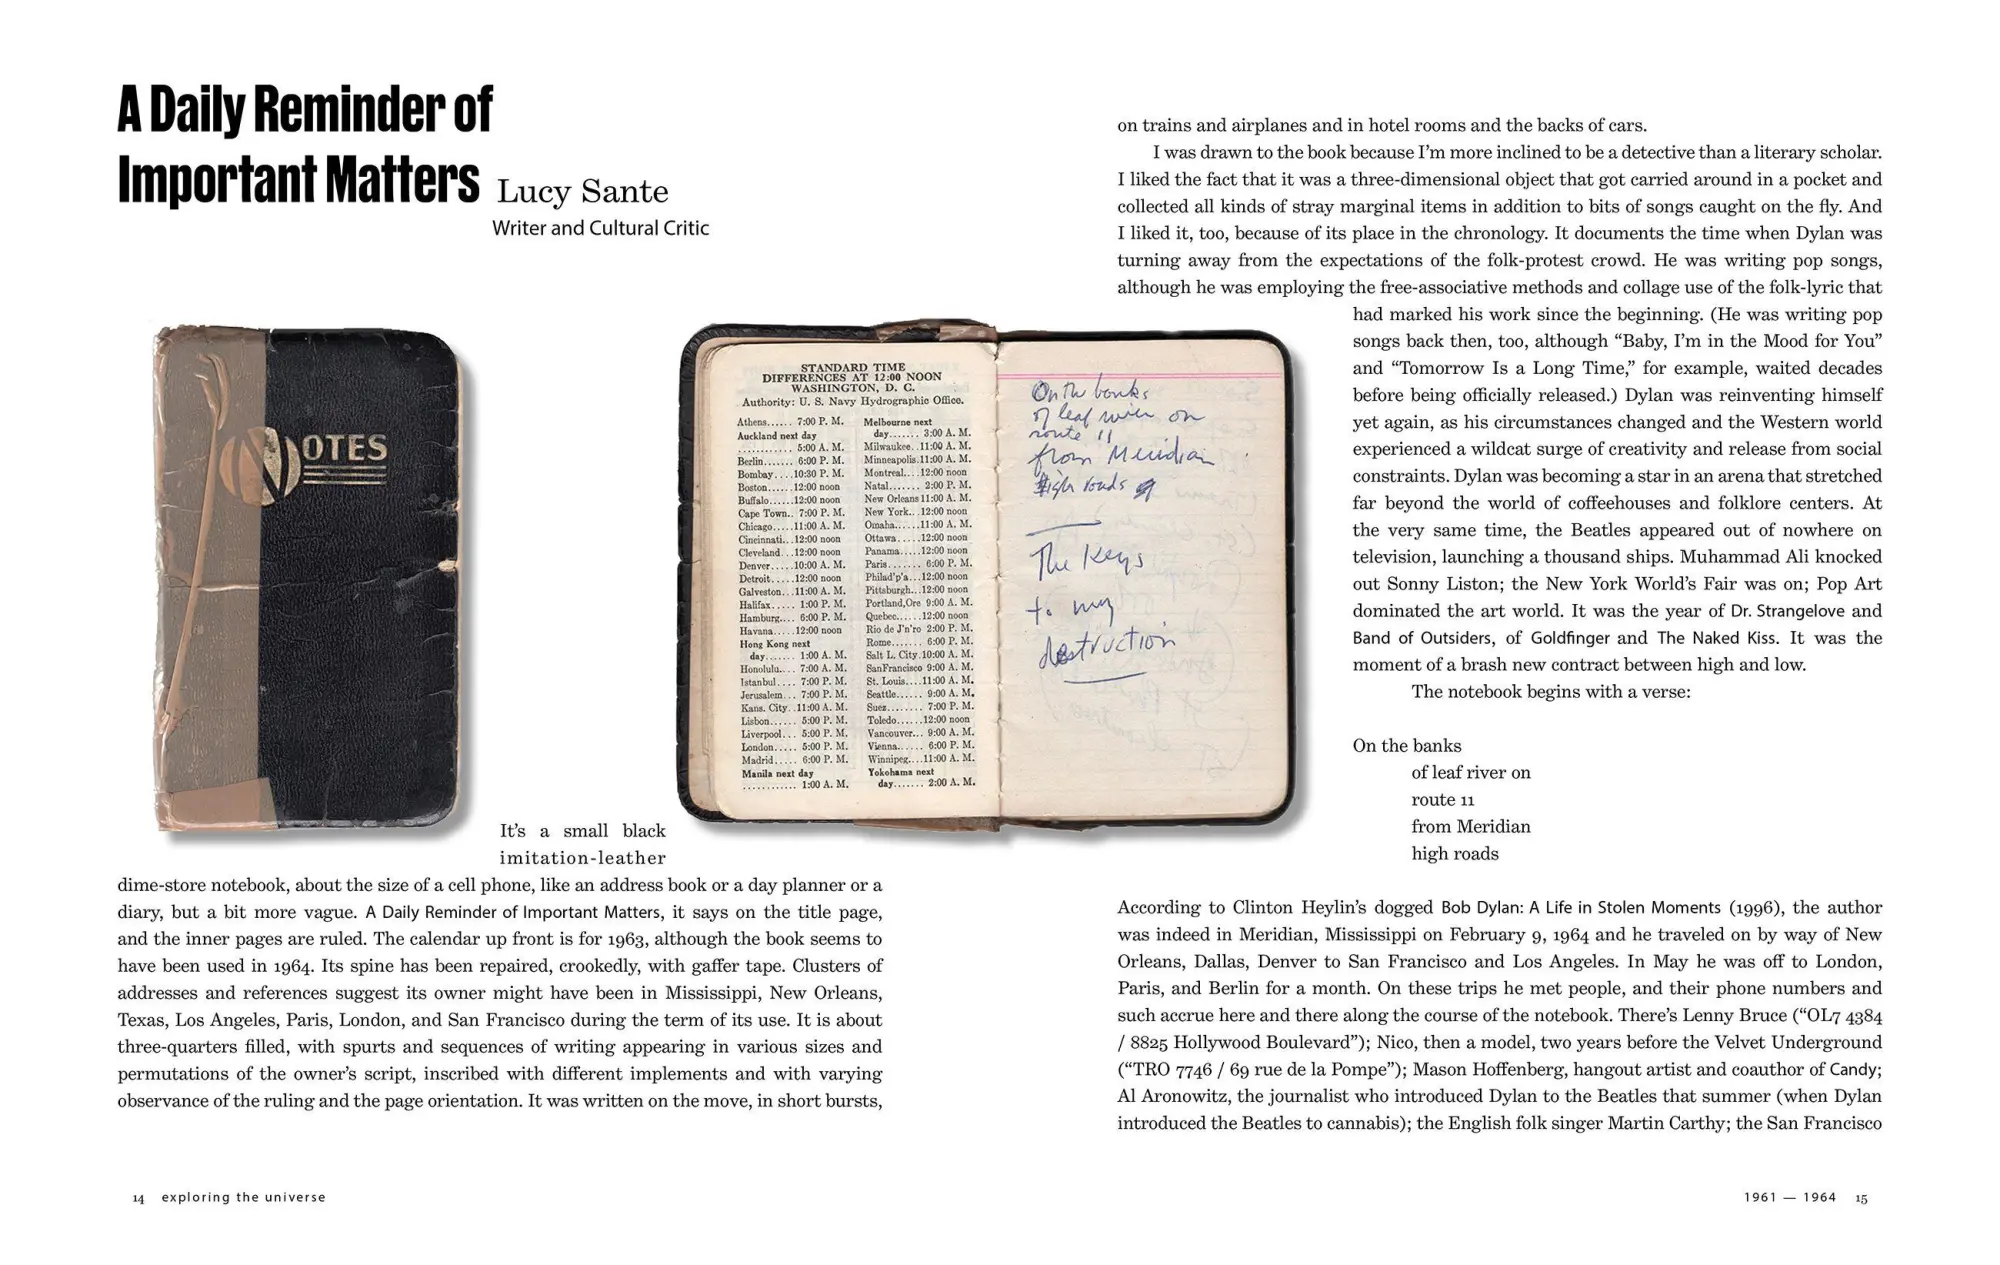 A Daily Reminder of
Important Matters Lucy Sante
Writer and Cultural Critic
NOTES
STANDARD TIME
DIFFERENCES AT 12:00 NOON
WASHINGTON, D. C.
Authority: U. S. Navy Hydrographic Office.
Athens...... 7:00 P. M.
Auckland next day
............ 5:00 A. M.
Berlin....... 6:00 P. M.
Bombay....10:30 P. M.
Boston......12:00 noon
Buffalo......12:00 noon
Cape Town.. 7:00 P. M.
Chicago.....11:00 A. M.
Cincinnati...12:00 noon
Cleveland...12:00 noon
Denver.....10:00 A. M.
Detroit.....12:00 noon
Galveston...11:00 A. M.
Halifax..... 1:00 P. M.
Hamburg.... 6:00 P. M.
Havana.....12:00 noon
Hong Kong next
day....... 1:00 A. M.
Honolulu.... 7:00 A. M.
Istanbul.... 7:00 P. M.
Jerusalem... 7:00 P. M.
Kans. City..11:00 A. M.
Lisbon...... 5:00 P. M.
Liverpool... 5:00 P. M.
London..... 5:00 P. M.
Madrid..... 6:00 P. M.
Manila next day
............ 1:00 A. M.
Melbourne next
day....... 3:00 A. M.
Milwaukee..11:00 A. M.
Minneapolis.11:00 A. M.
Montreal....12:00 noon
Natal....... 2:00 P. M.
New Orleans 11:00 A. M.
New York...12:00 noon
Omaha......11:00 A. M.
Ottawa.....12:00 noon
Panama.....12:00 noon
Paris....... 6:00 P. M.
Philad'p'a...12:00 noon
Pittsburgh...12:00 noon
Portland,Ore 9:00 A. M.
Quebec......12:00 noon
Rio de J'n'ro 2:00 P. M.
Rome....... 6:00 P. M.
Salt L. City.10:00 A. M.
SanFrancisco 9:00 A. M.
St. Louis....11:00 A. M.
Seattle...... 9:00 A. M.
Suez........ 7:00 P. M.
Toledo......12:00 noon
Vancouver... 9:00 A. M.
Vienna...... 6:00 P. M.
Winnipeg....11:00 A. M.
Yokohama next
day....... 2:00 A. M.
On the banks
of leaf river on
route 11
from Meridian
high roads
The Keys
to my
destruction
It’s a small black
imitation-leather
dime-store notebook, about the size of a cell phone, like an address book or a day planner or a
diary, but a bit more vague. A Daily Reminder of Important Matters, it says on the title page,
and the inner pages are ruled. The calendar up front is for 1963, although the book seems to
have been used in 1964. Its spine has been repaired, crookedly, with gaffer tape. Clusters of
addresses and references suggest its owner might have been in Mississippi, New Orleans,
Texas, Los Angeles, Paris, London, and San Francisco during the term of its use. It is about
three-quarters filled, with spurts and sequences of writing appearing in various sizes and
permutations of the owner’s script, inscribed with different implements and with varying
observance of the ruling and the page orientation. It was written on the move, in short bursts,
14 exploring the universe
on trains and airplanes and in hotel rooms and the backs of cars.
I was drawn to the book because I’m more inclined to be a detective than a literary scholar.
I liked the fact that it was a three-dimensional object that got carried around in a pocket and
collected all kinds of stray marginal items in addition to bits of songs caught on the fly. And
I liked it, too, because of its place in the chronology. It documents the time when Dylan was
turning away from the expectations of the folk-protest crowd. He was writing pop songs,
although he was employing the free-associative methods and collage use of the folk-lyric that
had marked his work since the beginning. (He was writing pop
songs back then, too, although “Baby, I’m in the Mood for You”
and “Tomorrow Is a Long Time,” for example, waited decades
before being officially released.) Dylan was reinventing himself
yet again, as his circumstances changed and the Western world
experienced a wildcat surge of creativity and release from social
constraints. Dylan was becoming a star in an arena that stretched
far beyond the world of coffeehouses and folklore centers. At
the very same time, the Beatles appeared out of nowhere on
television, launching a thousand ships. Muhammad Ali knocked
out Sonny Liston; the New York World’s Fair was on; Pop Art
dominated the art world. It was the year of Dr. Strangelove and
Band of Outsiders, of Goldfinger and The Naked Kiss. It was the
moment of a brash new contract between high and low.
The notebook begins with a verse:
On the banks
of leaf river on
route 11
from Meridian
high roads
According to Clinton Heylin’s dogged Bob Dylan: A Life in Stolen Moments (1996), the author
was indeed in Meridian, Mississippi on February 9, 1964 and he traveled on by way of New
Orleans, Dallas, Denver to San Francisco and Los Angeles. In May he was off to London,
Paris, and Berlin for a month. On these trips he met people, and their phone numbers and
such accrue here and there along the course of the notebook. There’s Lenny Bruce (“OL7 4384
/ 8825 Hollywood Boulevard”); Nico, then a model, two years before the Velvet Underground
(“TRO 7746 / 69 rue de la Pompe”); Mason Hoffenberg, hangout artist and coauthor of Candy;
Al Aronowitz, the journalist who introduced Dylan to the Beatles that summer (when Dylan
introduced the Beatles to cannabis); the English folk singer Martin Carthy; the San Francisco
1961 — 1964 15